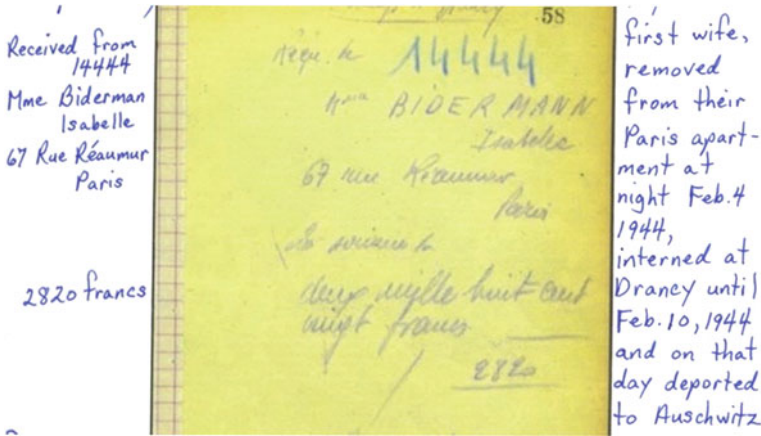 Received from
14444
Mme Biderman
Isabelle
67 Rue Réaumur
Paris
2820 francs
58
Reçu de 14444
Mme BIDERMANN
Isabelle
67 rue Réaumur
Paris
La somme de
deux mille huit cent
vingt francs
2820
first wife,
removed
from their
Paris apart-
ment at
night Feb. 4
1944,
interned at
Drancy until
Feb. 10, 1944
and on that
day deported
to Auschwitz